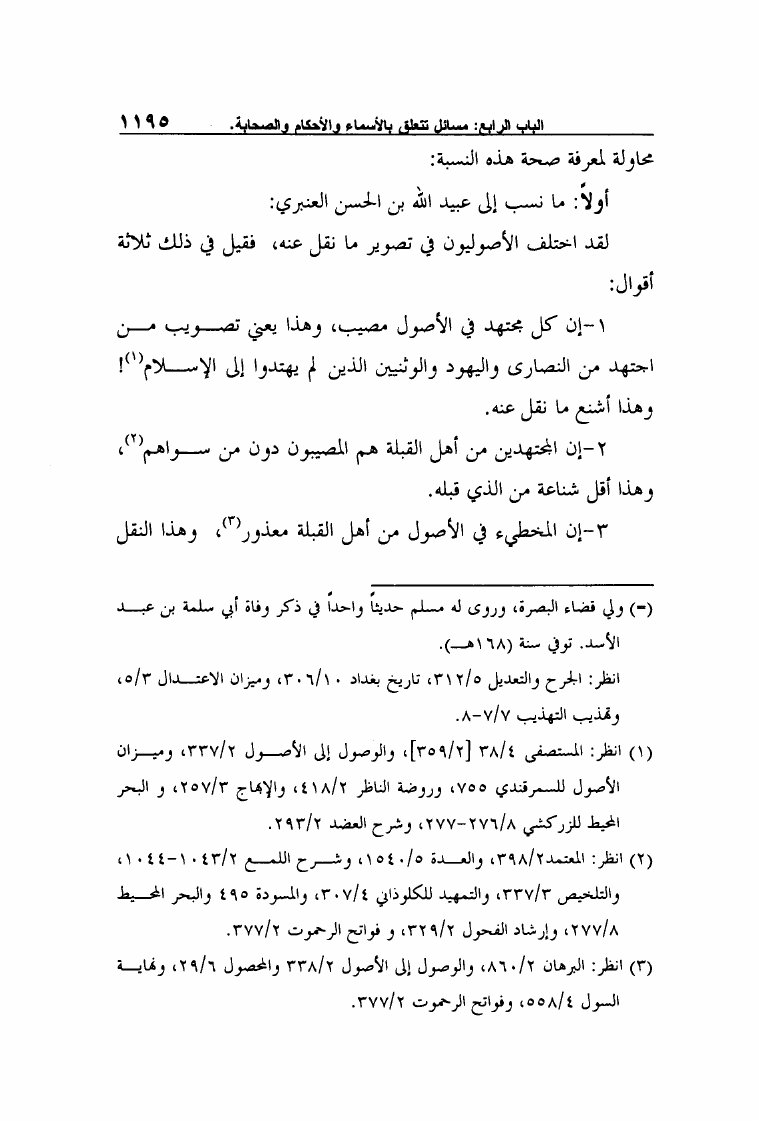 الباب الرابع: مسائل تتعلق بالأسماء والأحكام والصحابة. ١١٩٥
محاولة لمعرفة صحة هذه النسبة:
أولاً: ما نسب إلى عبيد الله بن الحسن العنبري:
لقد اختلف الأصوليون في تصوير ما نقل عنه، فقيل في ذلك ثلاثة
أقوال:
١-إن كل مجتهد في الأصول مصيب، وهذا يعني تصـــويب مـــن
اجتهد من النصارى واليهود والوثنيين الذين لم يهتدوا إلى الإســـلام(١)!
وهذا أشنع ما نقل عنه.
٢-إن المجتهدين من أهل القبلة هم المصيبون دون من ســـواهم(٢)،
وهذا أقل شناعة من الذي قبله.
٣-إن المخطيء في الأصول من أهل القبلة معذور(٣)، وهذا النقل
(=) ولي قضاء البصرة، وروى له مسلم حديثاً واحداً في ذكر وفاة أبي سلمة بن عبـــد
الأسد. توفي سنة (١٦٨هـــ).
انظر: الجرح والتعديل ٣١٢/٥، تاريخ بغداد ٣٠٦/١٠، وميزان الاعتـــدال ٥/٣،
وتهذيب التهذيب ٧/٧-٨.
(١) انظر: المستصفى ٣٨/٤ [٣٥٩/٢]، والوصول إلى الأصـــول ٣٣٧/٢، وميـــزان
الأصول للسمرقندي ٧٥٥، وروضة الناظر ٤١٨/٢، والإبهاج ٢٥٧/٣، و البحر
المحيط للزركشي ٢٧٦/٨-٢٧٧، وشرح العضد ٢٩٣/٢.
(٢) انظر: المعتمد٣٩٨/٢، والعـــدة ١٥٤٠/٥، وشـــرح اللمـــع ١٠٤٣/٢-١٠٤٤،
والتلخيص ٣٣٧/٣، والتمهيد للكلوذاني ٣٠٧/٤، والمسودة ٤٩٥ والبحر المحـــيط
٢٧٧/٨، وإرشاد الفحول ٣٢٩/٢، و فواتح الرحموت ٣٧٧/٢.
(٣) انظر: البرهان ٨٦٠/٢، والوصول إلى الأصول ٣٣٨/٢ والمحصول ٢٩/٦، ونهايـــة
السول ٥٥٨/٤، وفواتح الرحموت ٣٧٧/٢.